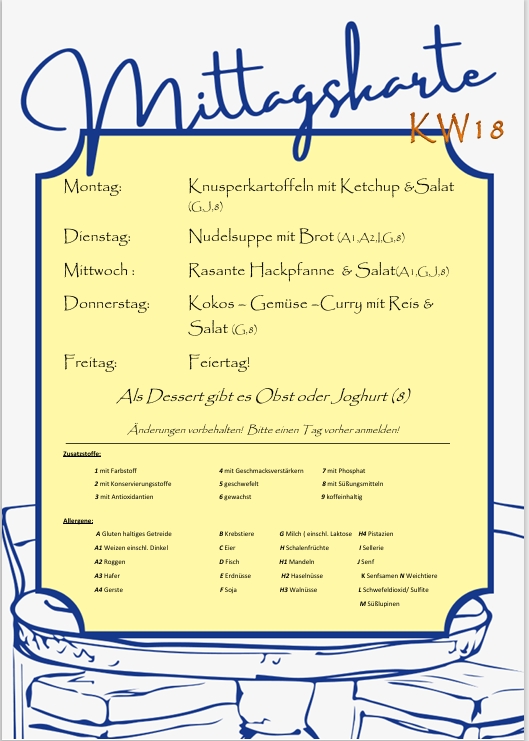 Mittagskarte
KW18
Montag: Knusperkartoffeln mit Ketchup &Salat
(G,J,8)
Dienstag: Nudelsuppe mit Brot (A1,A2,I,G,8)
Mittwoch : Rasante Hackpfanne & Salat(A1,G,J,8)
Donnerstag: Kokos – Gemüse –Curry mit Reis &
Salat (G,8)
Freitag: Feiertag!
Als Dessert gibt es Obst oder Joghurt (8)
Änderungen vorbehalten! Bitte einen Tag vorher anmelden!
Zusatzstoffe:
1 mit Farbstoff 4 mit Geschmacksverstärkern 7 mit Phosphat
2 mit Konservierungsstoffe 5 geschwefelt 8 mit Süßungsmitteln
3 mit Antioxidantien 6 gewachst 9 koffeinhaltig
Allergene:
A Gluten haltiges Getreide B Krebstiere G Milch ( einschl. Laktose H4 Pistazien
A1 Weizen einschl. Dinkel C Eier H Schalenfrüchte I Sellerie
A2 Roggen D Fisch H1 Mandeln J Senf
A3 Hafer E Erdnüsse H2 Haselnüsse K Senfsamen N Weichtiere
A4 Gerste F Soja H3 Walnüsse L Schwefeldioxid/ Sulfite
M Süßlupinen